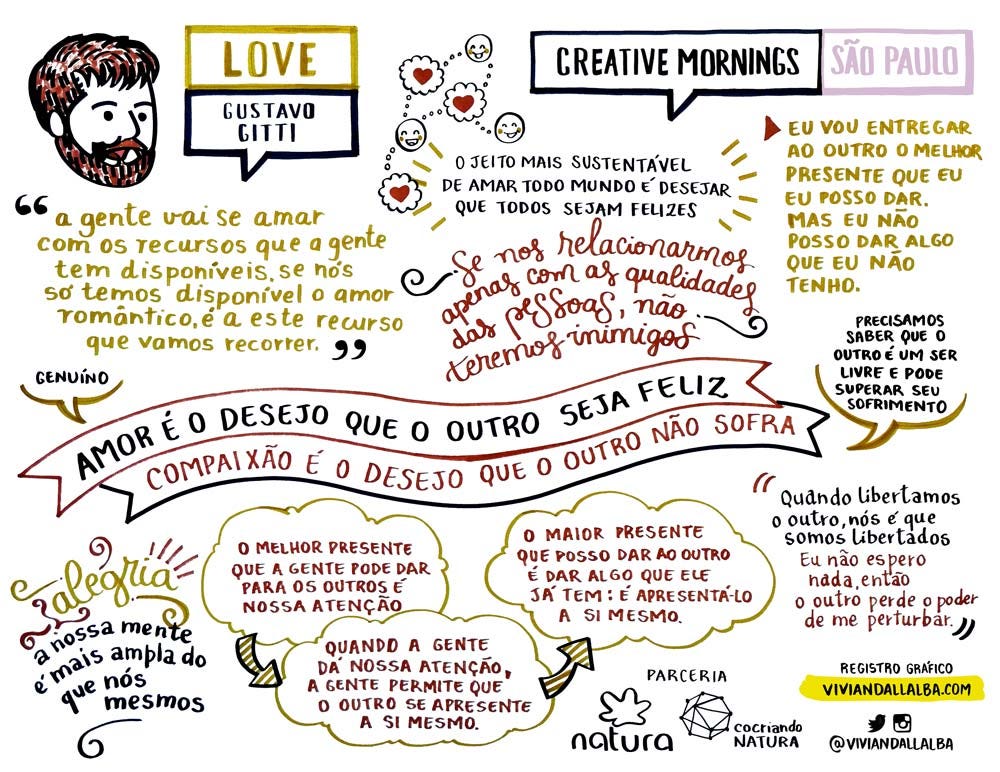 LOVE
GUSTAVO
GITTI
CREATIVE MORNINGS SÃO PAULO
O JEITO MAIS SUSTENTÁVEL
DE AMAR TODO MUNDO É DESEJAR
QUE TODOS SEJAM FELIZES
EU VOU ENTREGAR
AO OUTRO O MELHOR
PRESENTE QUE EU
EU POSSO DAR.
MAS EU NÃO
POSSO DAR ALGO
QUE EU NÃO
TENHO.
“a gente vai se amar
com os recursos que a gente
tem disponíveis, se nós
só temos disponível o amor
romântico, é a este recurso
que vamos recorrer.”
Se nos relacionarmos
apenas com as qualidades
das pessoas, não
teremos inimigos
PRECISAMOS
SABER QUE O
OUTRO É UM SER
LIVRE E PODE
SUPERAR SEU
SOFRIMENTO
GENUÍNO
AMOR É O DESEJO QUE O OUTRO SEJA FELIZ
COMPAIXÃO É O DESEJO QUE O OUTRO NÃO SOFRA
alegria
a nossa mente
é mais ampla do
que nós
mesmos
O MELHOR PRESENTE
QUE A GENTE PODE DAR
PARA OS OUTROS É
NOSSA ATENÇÃO
QUANDO A GENTE
DÁ NOSSA ATENÇÃO,
A GENTE PERMITE QUE
O OUTRO SE APRESENTE
A SI MESMO.
O MAIOR PRESENTE
QUE POSSO DAR AO OUTRO
É DAR ALGO QUE ELE
JÁ TEM: É APRESENTÁ-LO
A SI MESMO.
“Quando libertamos
o outro, nós é que
somos libertados
Eu não espero
nada, então
o outro perde o poder
de me perturbar.”
PARCERIA
natura
cocriando
NATURA
REGISTRO GRÁFICO
VIVIANDALLALBA.COM
@VIVIANDALLALBA